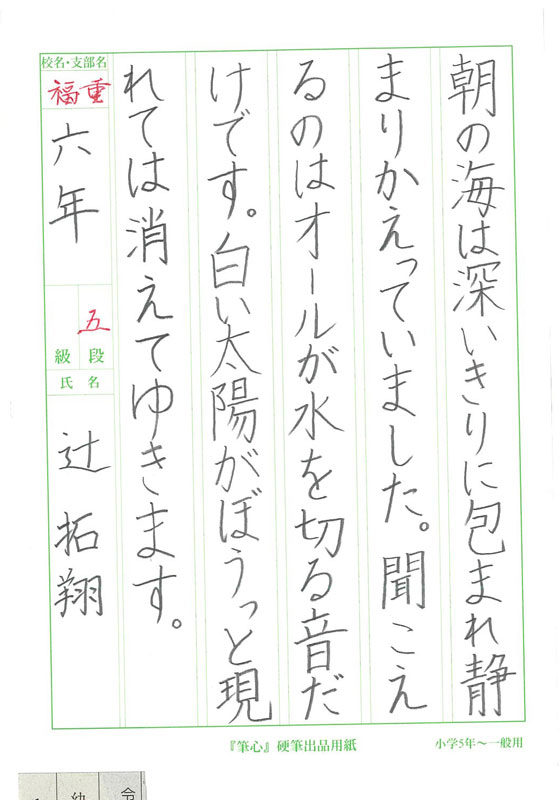 朝の海は深いきりに包まれ静
まりかえっていました。聞こえ
るのはオールが水を切る音だ
けです。白い太陽がぼうっと現
れては消えてゆきます。
校名・支部名
福重
六年
五
段
級
氏名
辻拓翔
『筆心』硬筆出品用紙
小学5年〜一般用